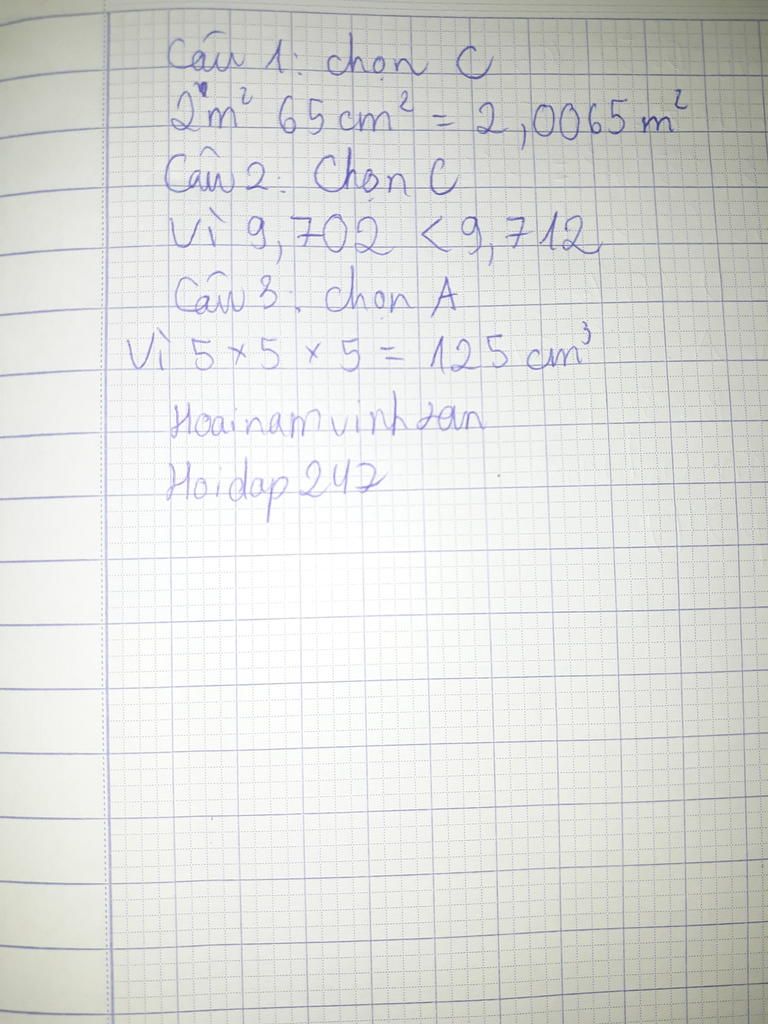 Câu 1: chọn C
2 m² 65 cm² = 2,0065 m²
Câu 2: Chọn C
Vì 9,702 < 9,712
Câu 3: chọn A
Vì 5 × 5 × 5 = 125 cm³
Hoainamvinhtan
Hoidap247